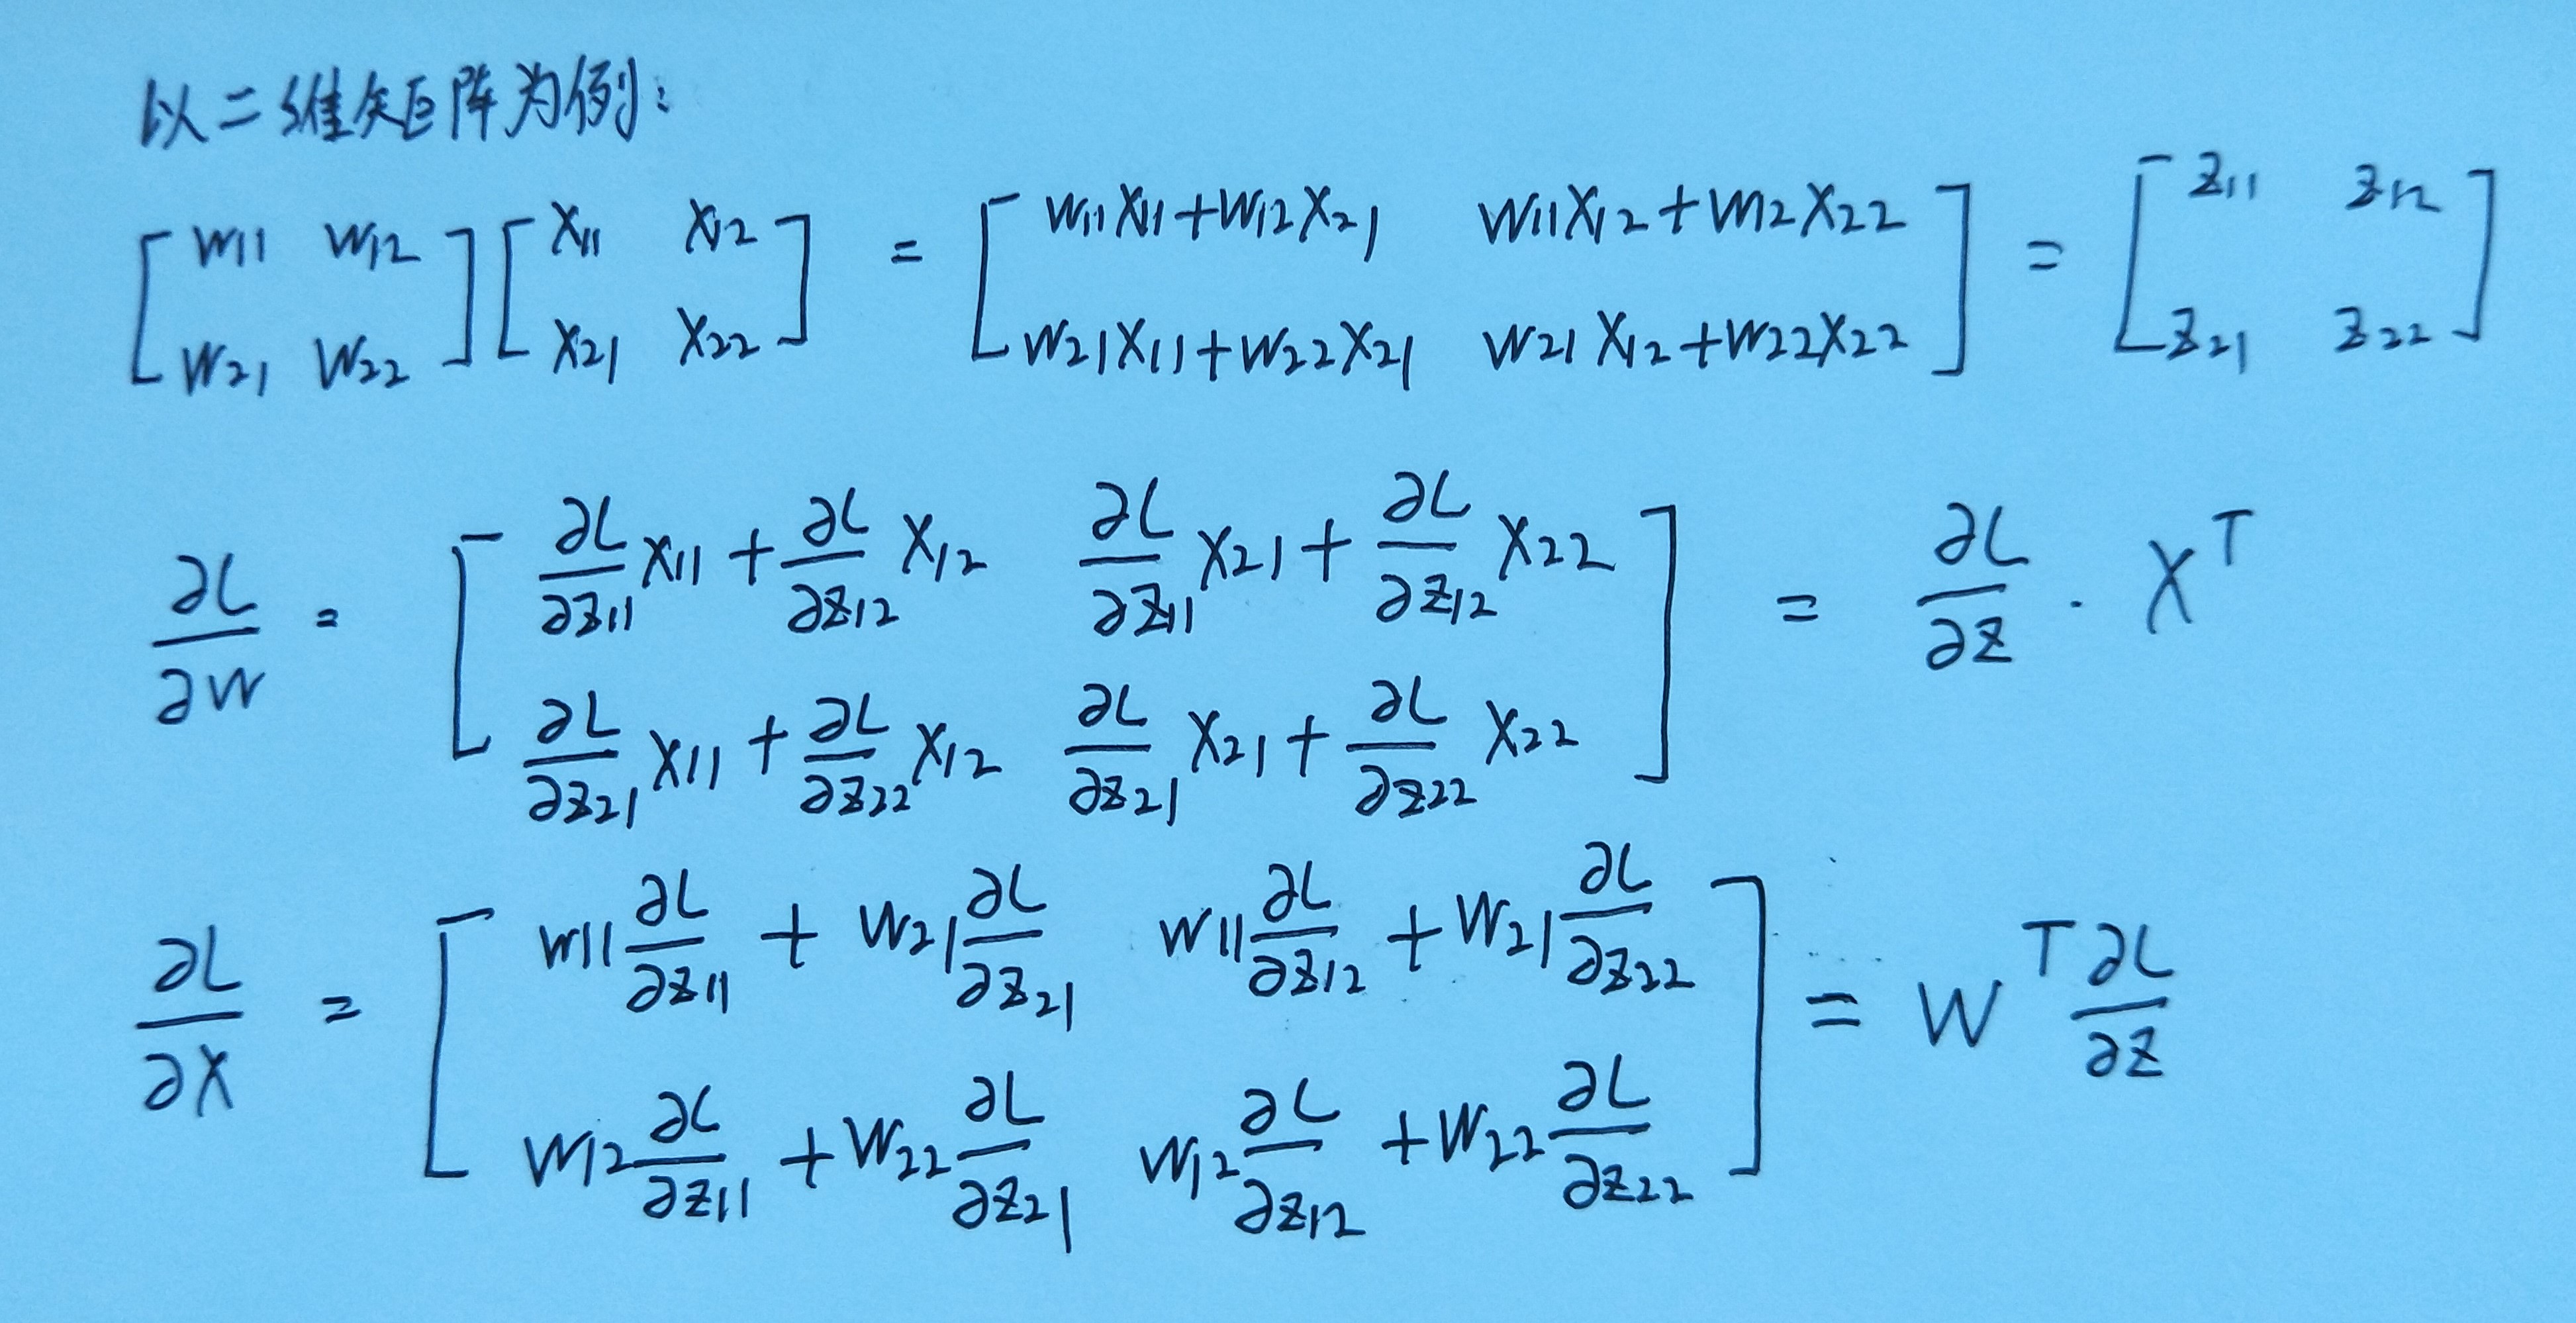 以二维矩阵为例:
[w11 w12; w21 w22] [x11 x12; x21 x22] = [w11x11+w12x21 w11x12+w12x22; w21x11+w22x21 w21x12+w22x22] = [z11 z12; z21 z22]
∂L/∂w = [∂L/∂z11 x11 + ∂L/∂z12 x12 ∂L/∂z11 x21 + ∂L/∂z12 x22; ∂L/∂z21 x11 + ∂L/∂z22 x12 ∂L/∂z21 x21 + ∂L/∂z22 x22] = ∂L/∂z · X^T
∂L/∂X = [w11 ∂L/∂z11 + w21 ∂L/∂z21 w11 ∂L/∂z12 + w21 ∂L/∂z22; w12 ∂L/∂z11 + w22 ∂L/∂z21 w12 ∂L/∂z12 + w22 ∂L/∂z22] = W^T ∂L/∂z